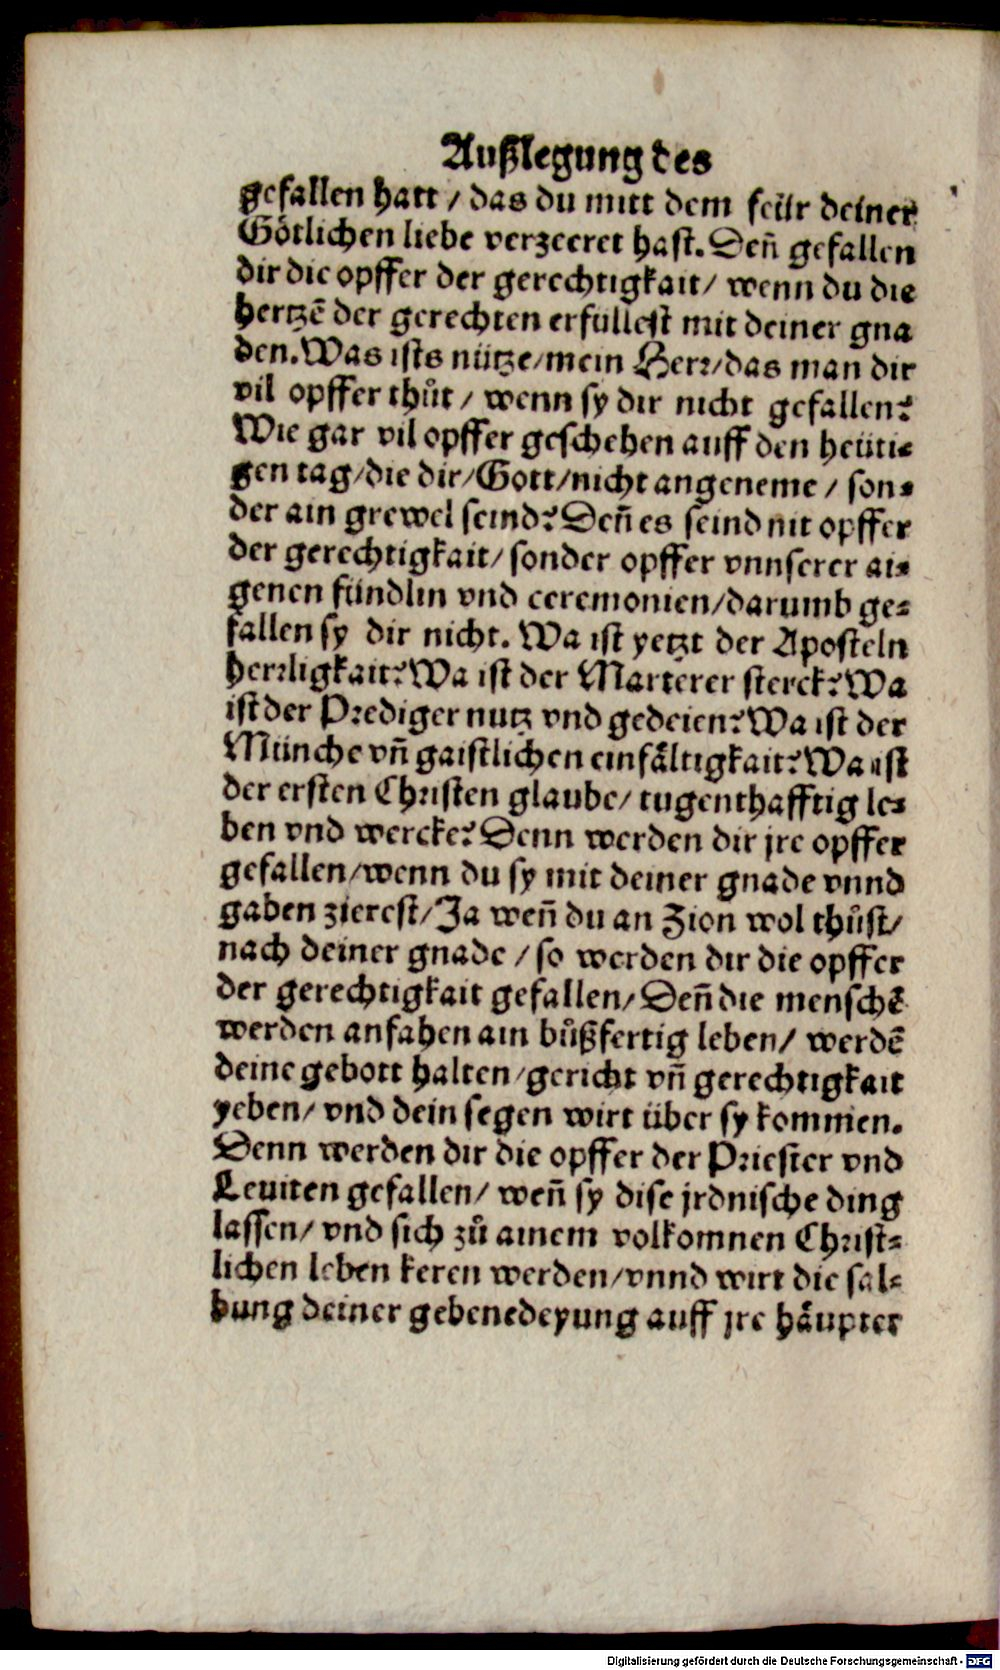 Außlegung des
gefallen hatt / das du mitt dem feür deiner
Götlichen liebe verzeeret hast. Deñ gefallen
dir die opffer der gerechtigkait / wenn du die
hertzẽ der gerechten erfüllest mit deiner gna
den. Was ists nütze / mein Herr / das man dir
vil opffer thůt / wenn sy dir nicht gefallen?
Wie gar vil opffer geschehen auff den heüti⸗
gen tag / die dir / Gott / nicht angeneme / son⸗
der ain grewel seind? Deñ es seind nit opffer
der gerechtigkait / sonder opffer vnnserer ai⸗
genen fündlin vnd ceremonien / darumb ge⸗
fallen sy dir nicht. Wa ist yetzt der Aposteln
herrligkait? Wa ist der Marterer sterck? Wa
ist der Prediger nutz vnd gedeien? Wa ist der
Münche vñ gaistlichen einfåltigkait? Wa ist
der ersten Christen glaube / tugenthafftig le⸗
ben vnd wercke? Denn werden dir jre opffer
gefallen / wenn du sy mit deiner gnade vnnd
gaben zierest / Ja weñ du an Zion wol thůst /
nach deiner gnade / so werden dir die opffer
der gerechtigkait gefallen / Deñ die menschẽ
werden anfahen ain bůßfertig leben / werdẽ
deine gebott halten / gericht vñ gerechtigkait
yeben / vnd dein segen wirt über sy kommen.
Denn werden dir die opffer der Priester vnd
Leuiten gefallen / weñ sy dise jrdnische ding
lassen / vnd sich zů ainem volkomnen Christ⸗
lichen leben keren werden / vnnd wirt die sal⸗
bung deiner gebenedeyung auff jre håupter
Digitalisierung gefördert durch die Deutsche Forschungsgemeinschaft - DFG